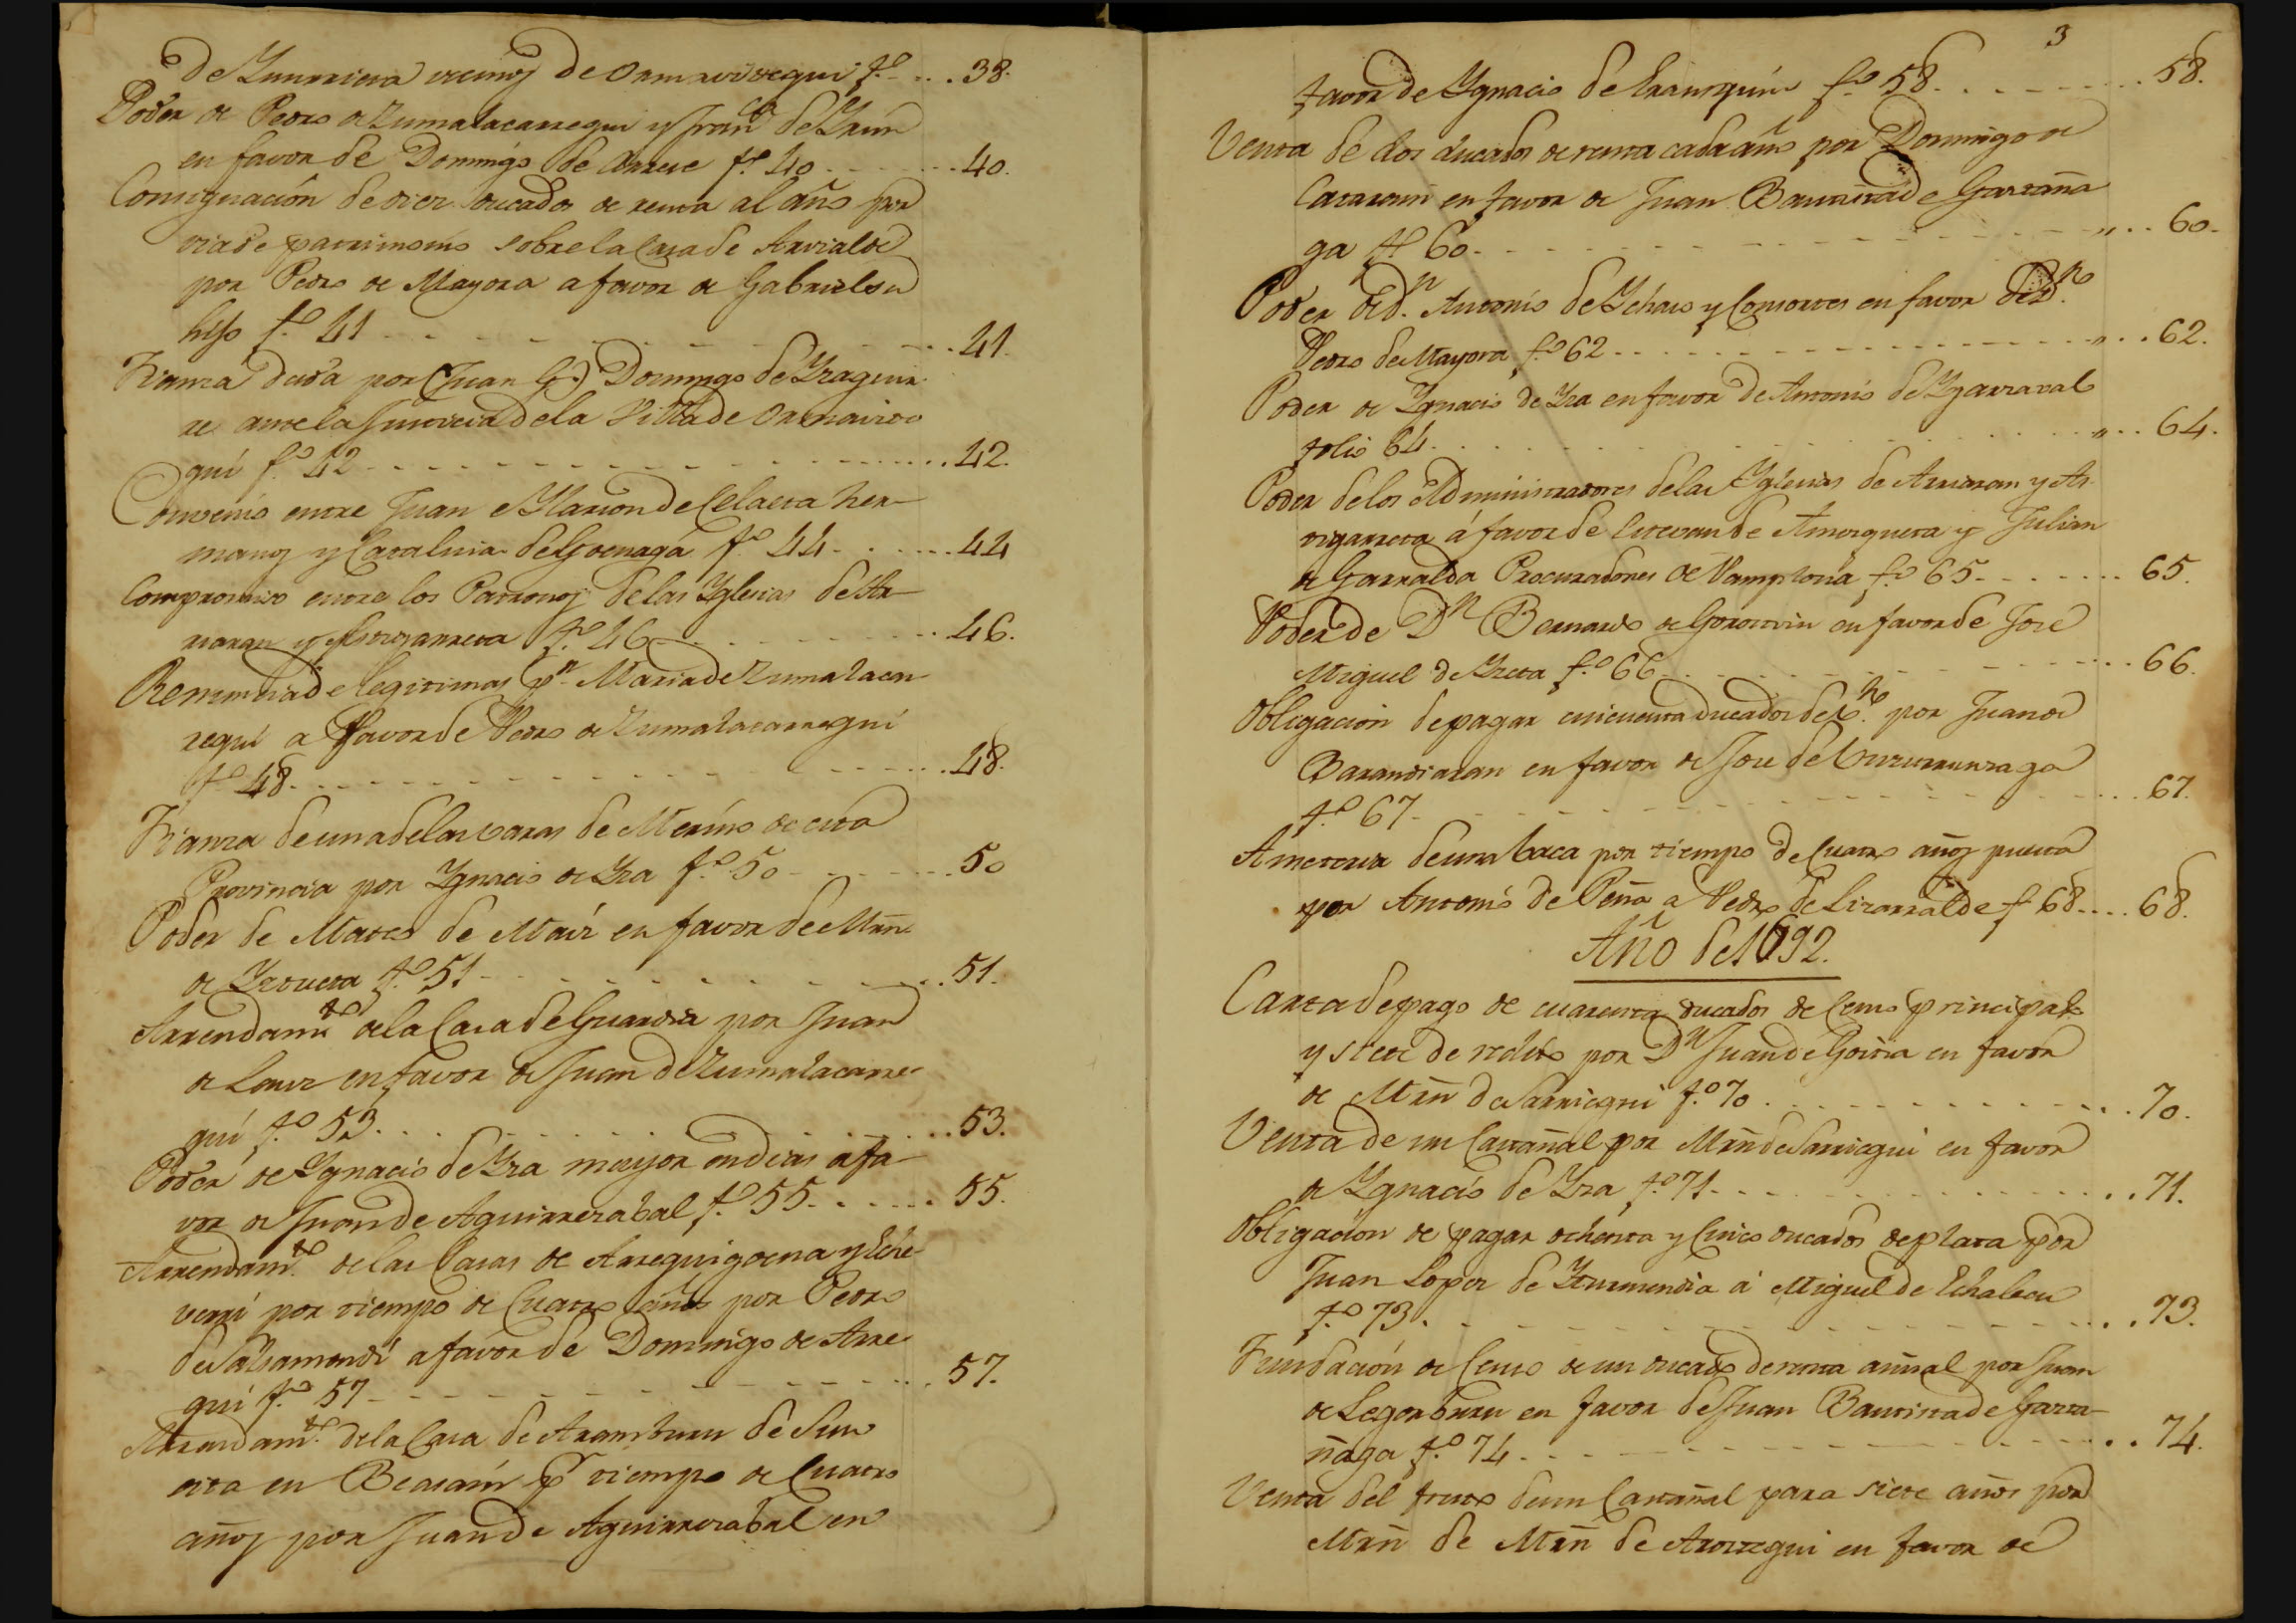 de Ynurriera vecinos de Ormaiztegui f.º ... 38.
Poder de Pedro de Zumalacarregui y Fran.co de Yrún
en favor de Domingo de Arrese f.º 40 ....... 40.
Consignación de diez ducados de renta al año por
via de patrimonio sobre la Casa de Arrialde
por Pedro de Mayora a favor de Gabriel su
hijo f.º 41 ....... 41.
Fianza dada por (Juan G.) Domingo de Yraguir
re ante la Justicia de la Villa de Ormaizte
gui f.º 42 ....... 42.
Convenio entre Juan e Ylarion de Celaeta her-
manos y Catalina de Goenaga f.º 44 ....... 44
Compromiso entre los Patronos de las Yglesias de Ar-
riaran y Astigarreta f.º 46 ....... 46.
Renuncia de legitimas p.r Maria de Zumalacar-
regui a favor de Pedro de Zumalacarregui
f.º 48 ....... 48.
Fianza de una de las varas de Merino de esta
Provincia por Ygnacio de Yza f.º 50 ....... 50
Poder de Mateo de Maiz en favor de Mrn.
de Yztueta f.º 51 ....... 51.
Arrendam.to de la Casa de Guardia por Juan
de Lauz en favor de Juan de Zumalacarre-
gui f.º 53 ....... 53.
Poder de Ygnacio de Yza mayor en dias a fa-
vor de Juan de Aguirrezabal f.º 55 ...... 55.
Arrendam.to de las Casas de Arreguigoena y Eche-
verri por tiempo de Cuatro años por Pedro
de Salsamendi a favor de Domingo de Arre-
gui f.º 57 ....... 57.
Arrendam.to de la Casa de Aramburu de Suso
sita en Beasain p.r tiempo de Cuatro
años por Juan de Aguirrezabal en
3
favor de Ygnacio de Erausquin f.º 58 ....... 58.
Venta de dos ducados de renta cada año por Domingo de
en favor de Juan Bautista de Garraña
ga f.º 60 ....... 60.
Poder de D.n Antonio de Ychaso y Consortes en favor de
Pedro de Mayora f.º 62 ....... 62.
Poder de Ygnacio de Yza en favor de Antonio de Ygarzaval
folio 64 ....... 64.
Poder de los Administradores de las Yglesias de Arriaran y As-
tigarreta á favor de Estevan de Amezqueta y Julian
de Garralda Procuradores de Pamplona f.º 65 ....... 65.
Poder de D.n Bernardo de Gorostizu en favor de José
Miguel de Yzeta f.º 66 ....... 66.
Obligación de pagar cincuenta ducados de por Juan de
Barandiaran en favor de José de
f.º 67 ....... 67.
Ameteria de una baca por tiempo de Cuatro años puesta
por Antonio de Peña a Pedro de Lizarralde f. 68 .... 68.
Año de 1692.
Carta de pago de cuarenta ducados de Censo principal
y siete de reditos por D.n Juan de Goitia en favor
de Mrn de Sarriegui f.º 70 ....... 70.
Venta de un Castañal por Mrn de Sarriegui en favor
de Ygnacio de Yza f.º 71 ....... 71.
Obligación de pagar ochenta y Cinco ducados de plata por
Juan Lopez de Yturmendia á Miguel de Echalecu
f.º 73 ....... 73.
Fundación de Censo de un ducado de renta annal por Juan
de Legorburu en favor de Juan Bautista de Garra-
ñaga f.º 74 ....... 74.
Venta del fruto de un Castañal para siete años por
Mrn de Mrn de Arostegui en favor de